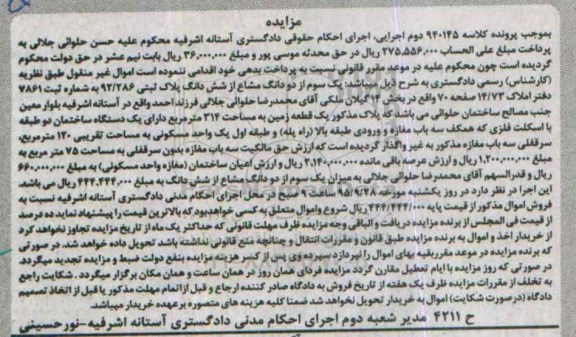 مزایده
بموجب پرونده کلاسه ۹۴۰۱۴۵ دوم اجرایی، اجرای احکام حقوقی دادگستری آستانه اشرفیه محکوم علیه حسن حلوائی جلالی به
پرداخت مبلغ علی الحساب ۲۷۵,۵۵۶,۰۰۰ ریال در حق محدثه موسی پور و مبلغ ۳۶,۰۰۰,۰۰۰ ریال بابت نیم عشر در حق دولت محکوم
گردیده است چون محکوم علیه در موعد مقرر قانونی نسبت به پرداخت بدهی خود اقدامی ننموده است اموال غیر منقول طبق نظریه
(کارشناس) رسمی دادگستری به شرح ذیل میباشد: یک سوم از دو دانگ مشاع از شش دانگ پلاک ثبتی ۹۲/۲۸۶ به شماره ثبت ۷۸۶۱
دفتر املاک ۱۴/۷۳ صفحه ۷۰ واقع در بخش ۱۲ گیلان ملکی آقای محمدرضا حلوائی جلالی فرزند احمد واقع در آستانه اشرفیه بلوار معین
جنب مصالح ساختمان حلوائی می باشد که پلاک مذکور یک قطعه زمین به مساحت ۳۱۴ مترمربع دارای یک دستگاه ساختمان دو طبقه
با اسکلت فلزی که همکف سه باب مغازه و ورودی طبقه بالا (راه پله) و طبقه اول یک واحد مسکونی به مساحت تقریبی ۱۲۰ مترمربع،
سرقفلی سه باب مغازه مذکور به غیر واگذار گردیده است که ارزش حق مالکیت سه باب مغازه بدون سرقفلی به مساحت ۷۵ متر مربع به
مبلغ ۱,۲۰۰,۰۰۰,۰۰۰ ریال و ارزش عرصه باقی مانده ۲,۱۴۰,۰۰۰,۰۰۰ ریال و ارزش اعیان ساختمان (مغازه واحد مسکونی) به مبلغ ۶۶۰,۰۰۰,۰۰۰
ریال و قدرالسهم آقای محمدرضا حلوائی جلالی به میزان یک سوم از دو دانگ مشاع از شش دانگ به مبلغ ۴۴۴,۴۴۴,۰۰۰ ریال می باشد.
این اجرا در نظر دارد در روز یکشنبه مورخه ۹۵/۹/۲۸ ساعت ۹ صبح در محل اجرای احکام مدنی دادگستری آستانه اشرفیه نسبت به
فروش اموال مذکور از قیمت پایه ۴۴۴/۴۴۴/۰۰۰ ریال شروع و اموال متعلق به کسی خواهد بود که بالاترین قیمت را پیشنهاد نماید ده درصد
از قیمت فی المجلس از برنده مزایده دریافت و الباقی وجه مزایده ظرف مهلت قانونی که حداکثر یک ماه از تاریخ مزایده تجاوز نخواهد کرد
از خریدار اخذ و اموال به برنده مزایده طبق قانون و مقررات انتقال و چنانچه منع قانونی نداشته باشد تحویل داده خواهد شد. در صورتی
که برنده مزایده در موعد مقرر بقیه بهای اموال را نپردازد سپرده وی پس از کسر هزینه مزایده بنفع دولت ضبط و مزایده تجدید میگردد.
در صورتی که روز مزایده با ایام تعطیل مقارن گردد مزایده فردای همان روز در همان ساعت و همان مکان برگزار میگردد. شکایت راجع
به تخلف از مقررات مزایده ظرف یک هفته از تاریخ فروش به دادگاه صادر کننده ارجاع و قبل از اتمام مهلت مذکور یا قبل از اتخاذ تصمیم
دادگاه (در صورت شکایت) اموال به خریدار تحویل نخواهد شد ضمنا کلیه هزینه های متصوره بر عهده خریدار میباشد.
ح ۴۲۱۱ مدیر شعبه دوم اجرای احکام مدنی دادگستری آستانه اشرفیه-نورحسینی